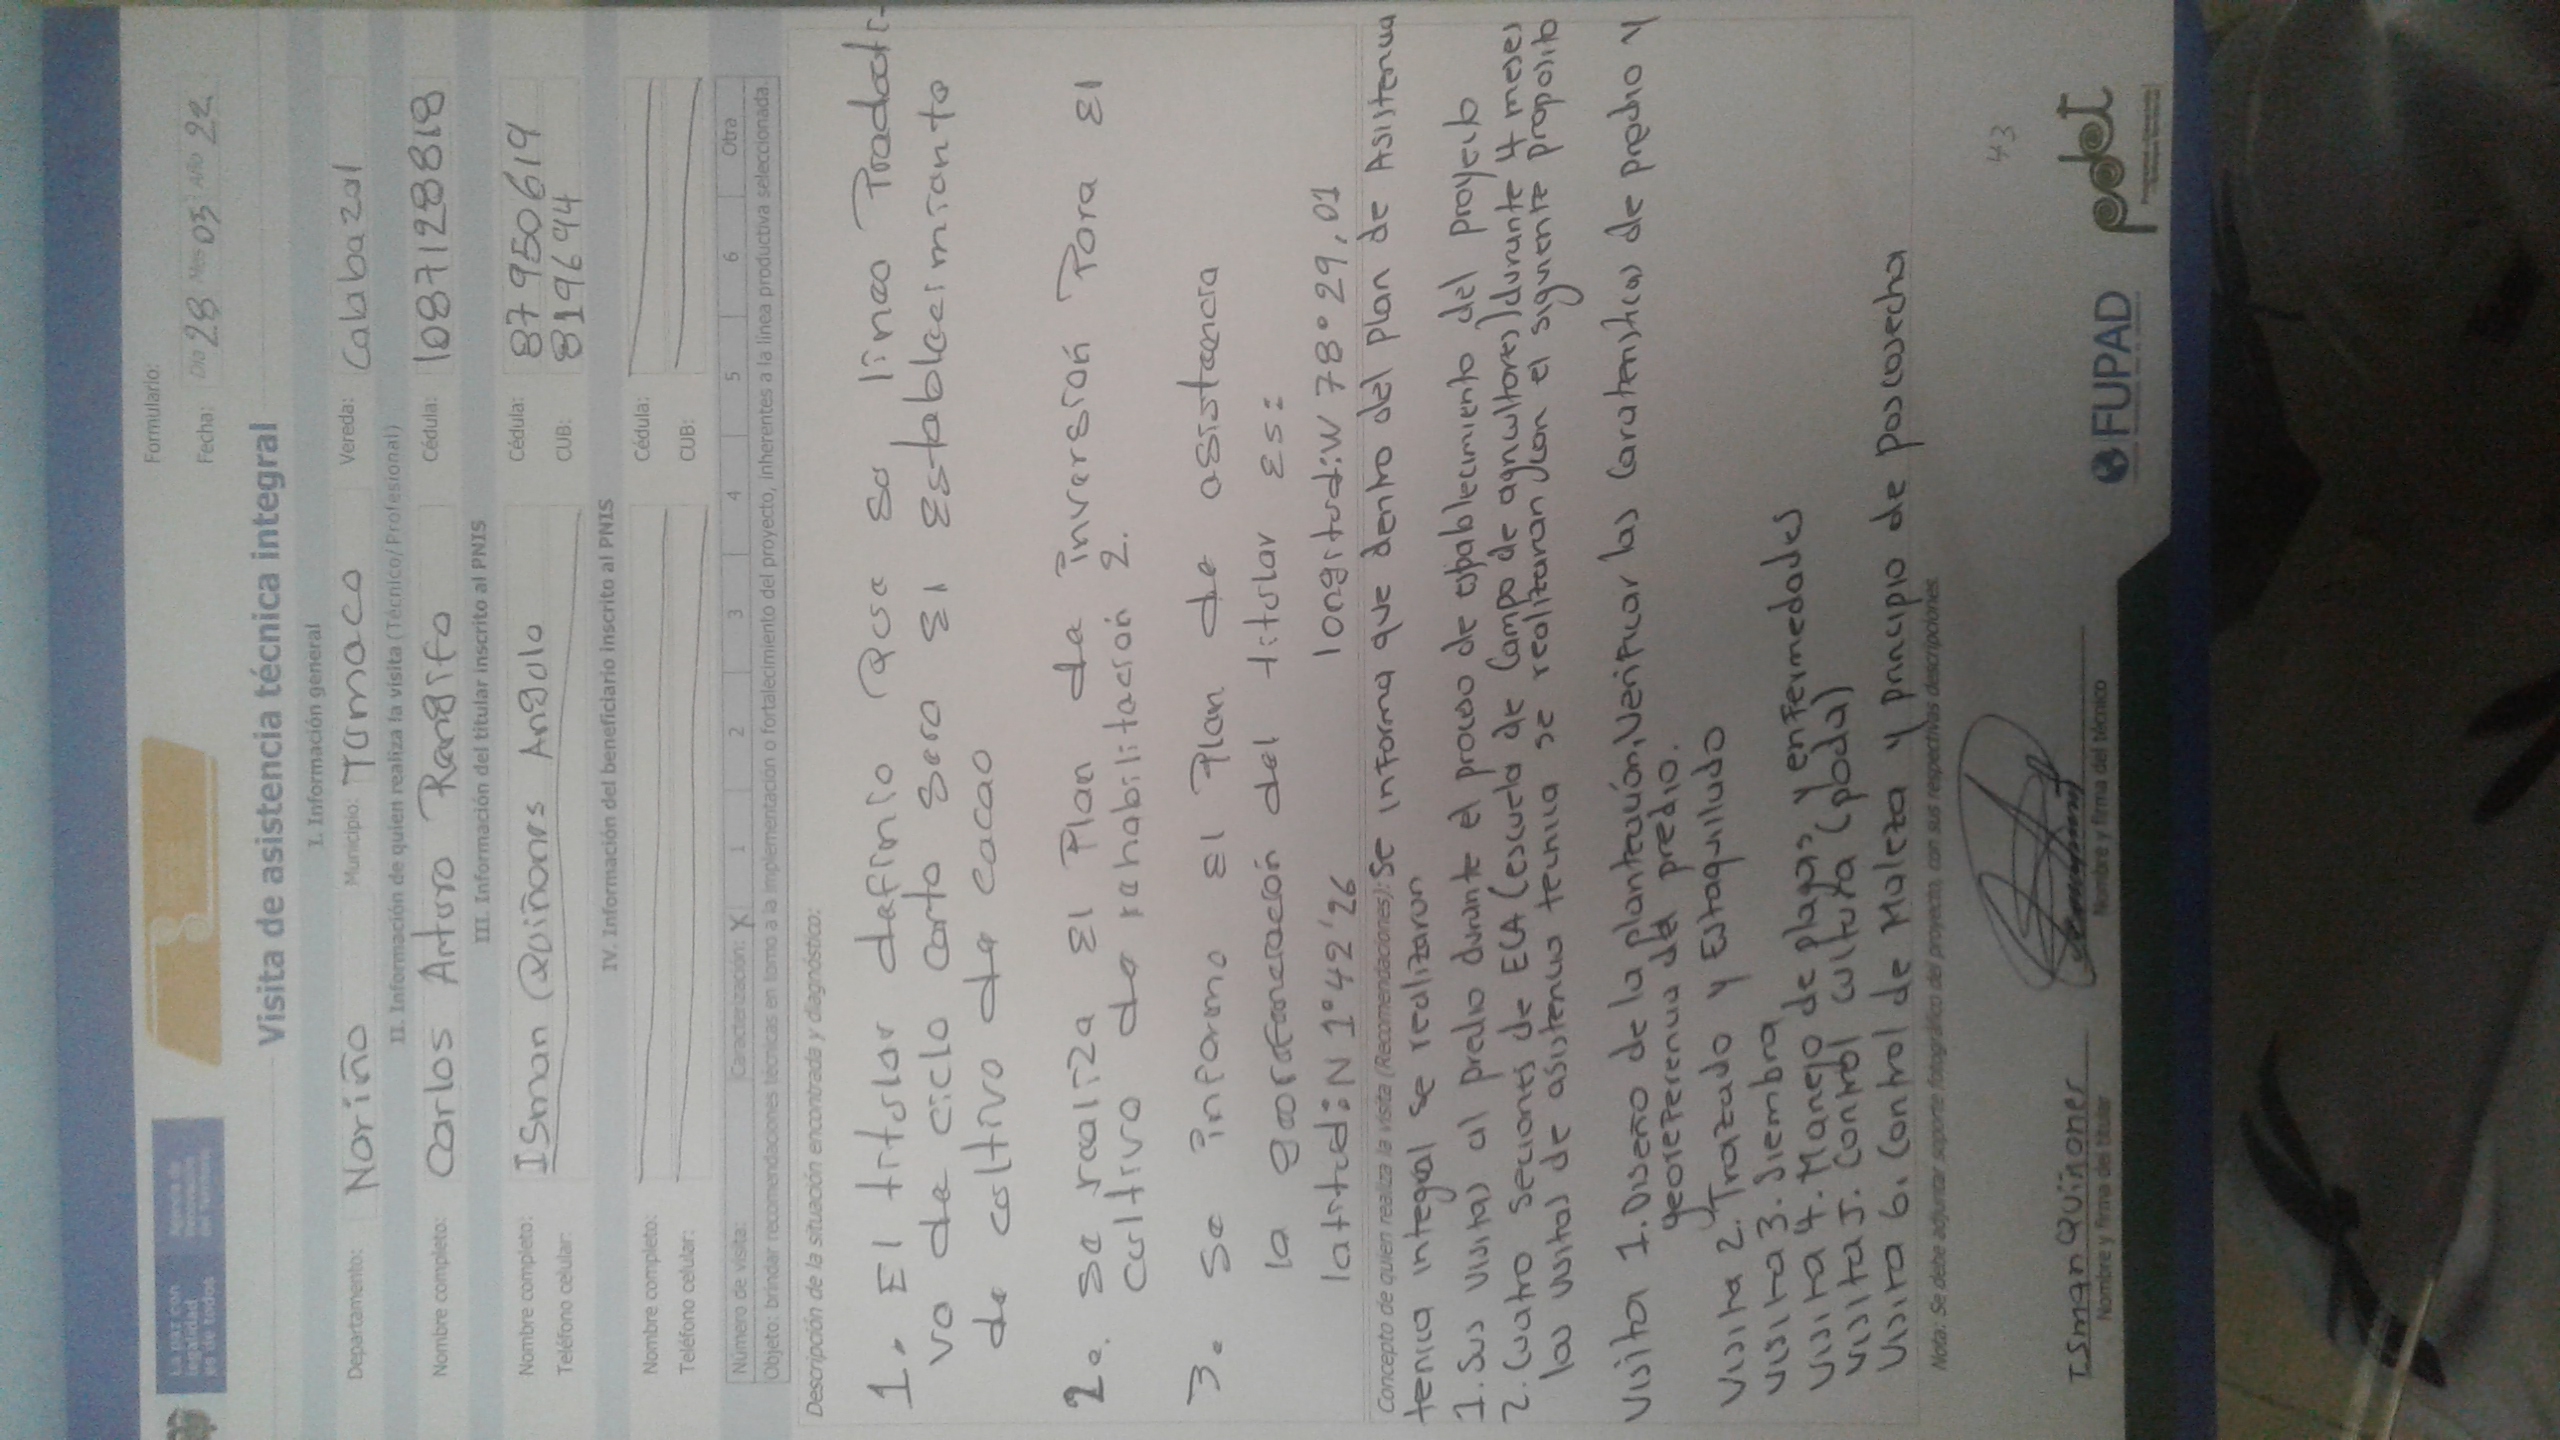 La paz con
legalidad
es de todos
Formulario:
Fecha: DIA 28 MES 03 AÑO 22
Visita de asistencia técnica integral
I. Información general
Departamento: Nariño Municipio: Tumaco Vereda: Calabazal
II. Información de quien realiza la visita (Técnico/Profesional)
Nombre completo: Carlos Arturo Rengifo Cédula: 1087128818
III. Información del titular inscrito al PNIS
Nombre completo: ISman Quiñones Angulo Cédula: 87950619
Teléfono celular: CUB: 8196944
IV. Información del beneficiario inscrito al PNIS
Nombre completo: Cédula:
Teléfono celular: CUB:
Número de visita: Caracterización: X 1 2 3 4 5 6 Otra
Objeto: brindar recomendaciones técnicas en torno a la implementación o fortalecimiento del proyecto, inherentes a la línea productiva seleccionada.
Descripción de la situación encontrada y diagnóstico:
1. El titular definio Que su línea Producti-
va de ciclo corto sera El Establecimiento
de cultivo de cacao
2. Se realiza El Plan de inversión Para El
cultivo de rehabilitación 2.
3. Se informo El Plan de asistencia
la georeferenciación del titular Es:
latitud:N 1°42'26 longitud:W 78°29,01
Concepto de quien realiza la visita (Recomendaciones): Se informa que dentro del plan de Asistencia
tenica integral se realizaron
1. Sus visitas al predio durante el proceso de establecimiento del proyecto
2. Cuatro secciones de ECA (escuela de Campo de agricultores) durante 4 meses
las visitas de asistencia tecnica se realizaran con el siguiente proposito
Visita 1. Diseño de la plantención, Verificar las Caracteristicas de predio y
georeferencia del predio.
Visita 2. Trazado y Estaquillado
Visita 3. Siembra
Visita 4. Manejo de plagas y enfermedades
Visita 5. Control cultura (poda)
Visita 6. Control de Maleza y principio de poscosecha
Nota: Se debe adjuntar soporte fotográfico del proyecto, con sus respectivas descripciones.
43
ISman Quiñones
Nombre y firma del titular
Nombre y firma del técnico
FUPAD
pdet